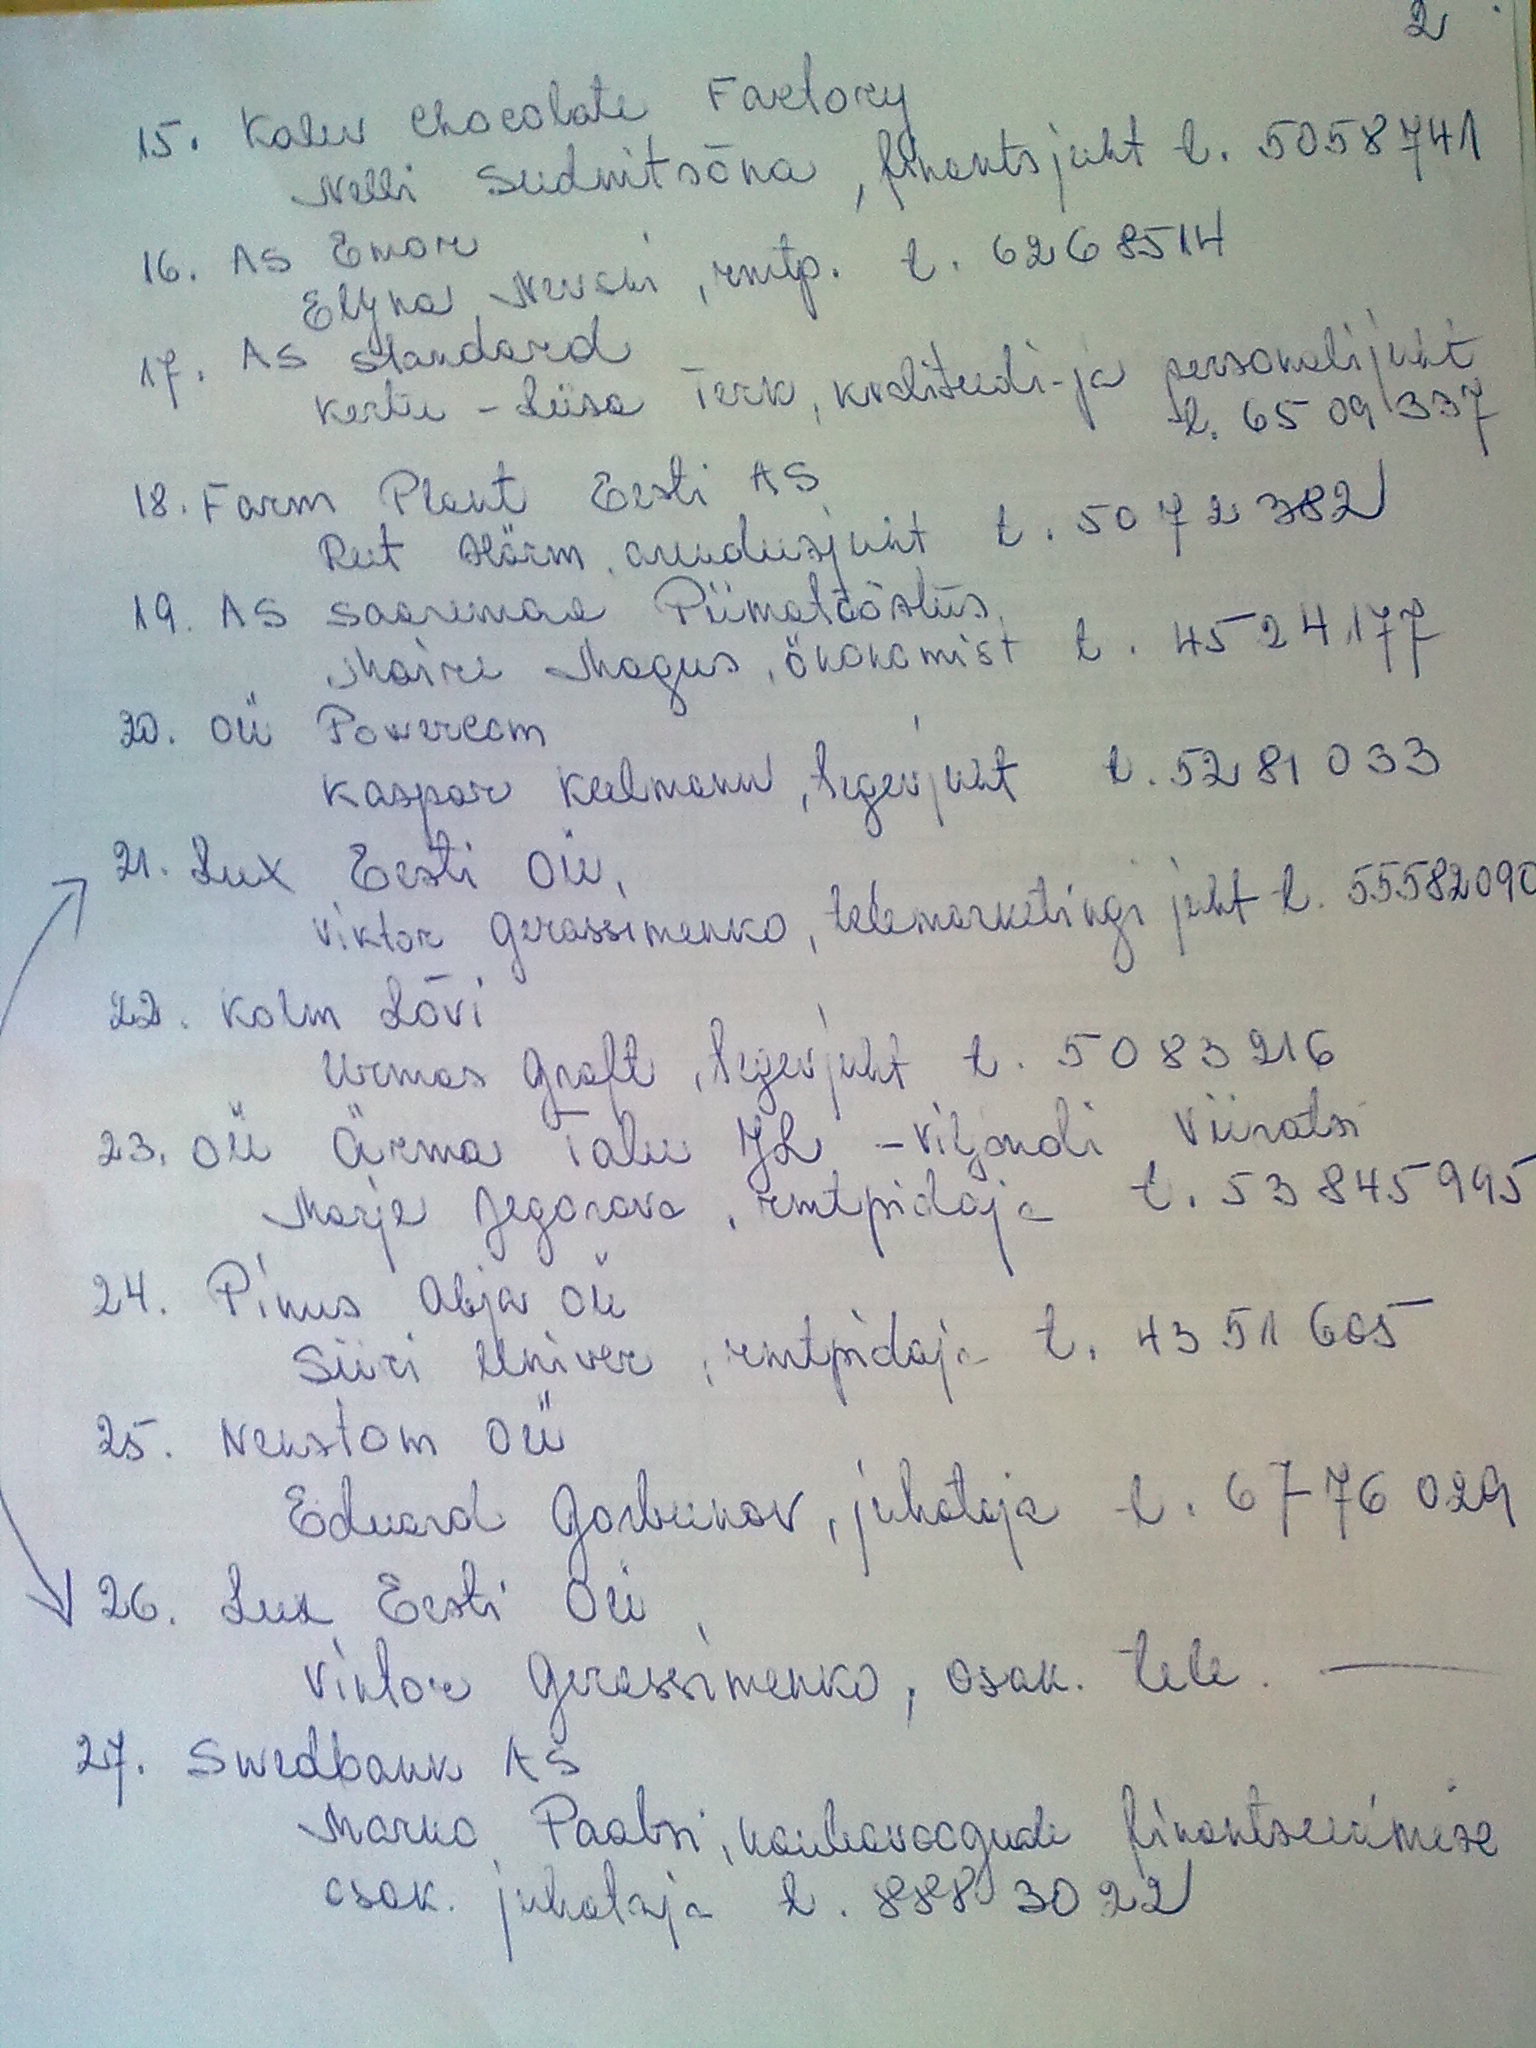 2
15. Kalev Chocolate Factory
Nelli Sudnitsõna, finantsjuht t. 5058741
16. AS Emor
Elyna Nevski, rmtp. t. 6268514
17. AS Standard
Kertu-Liisa Terk, kvaliteedi-ja personalijuht
t. 6509337
18. Farm Plant Eesti AS
Rut Härm, arendusjuht t. 5072382
19. AS Saaremaa Piimatööstus,
Maire Magus, ökonomist t. 4524177
20. OÜ Powercom
Kaspar Keelmann, tegevjuht t. 5281033
21. Lux Eesti OÜ,
Viktor Gerassimenko, telemarketingi juht t. 55582090
22. Kolm Lõvi
Urmas Graft, tegevjuht t. 5083216
23. OÜ Ärma Talu JL - Viljandi Viiratsi
Marje Jegorova, rmtpidaja t. 53845995
24. Pinus Abja OÜ
Siiri Univer, rmtpidaja t. 4351605
25. Nekstom OÜ
Eduard Gorbunov, juhataja t. 6776029
26. Lux Eesti OÜ,
Viktor Gerassimenko, osak. tele.
27. Swedbank AS
Marko Paabsi, kaubavoogude finantseerimise
osak. juhataja t. 8883022